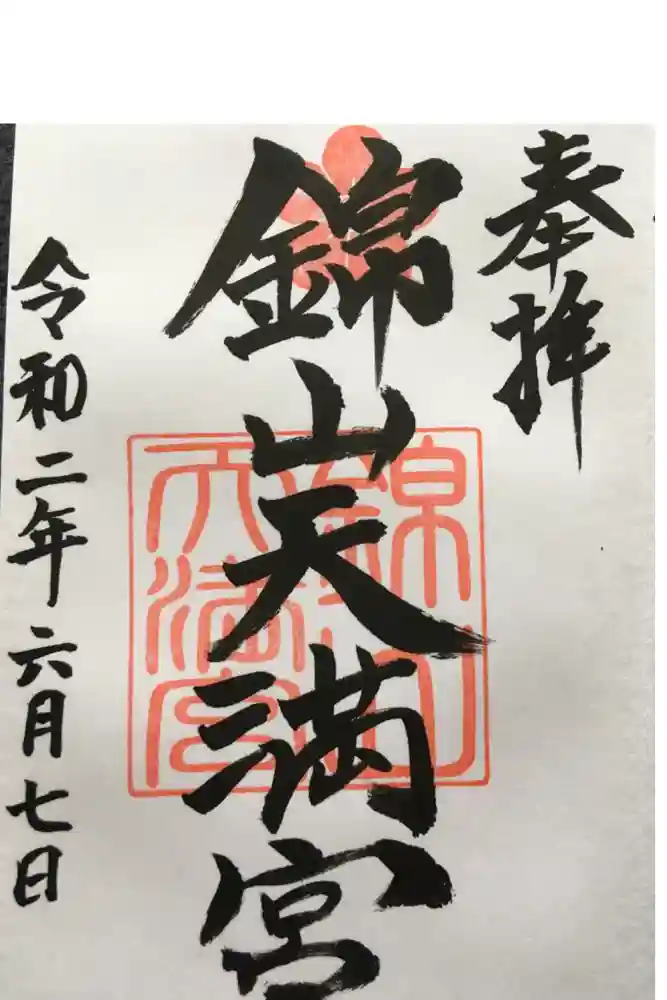 奉拝
錦山天満宮
錦山
天満宮
令和二年六月七日